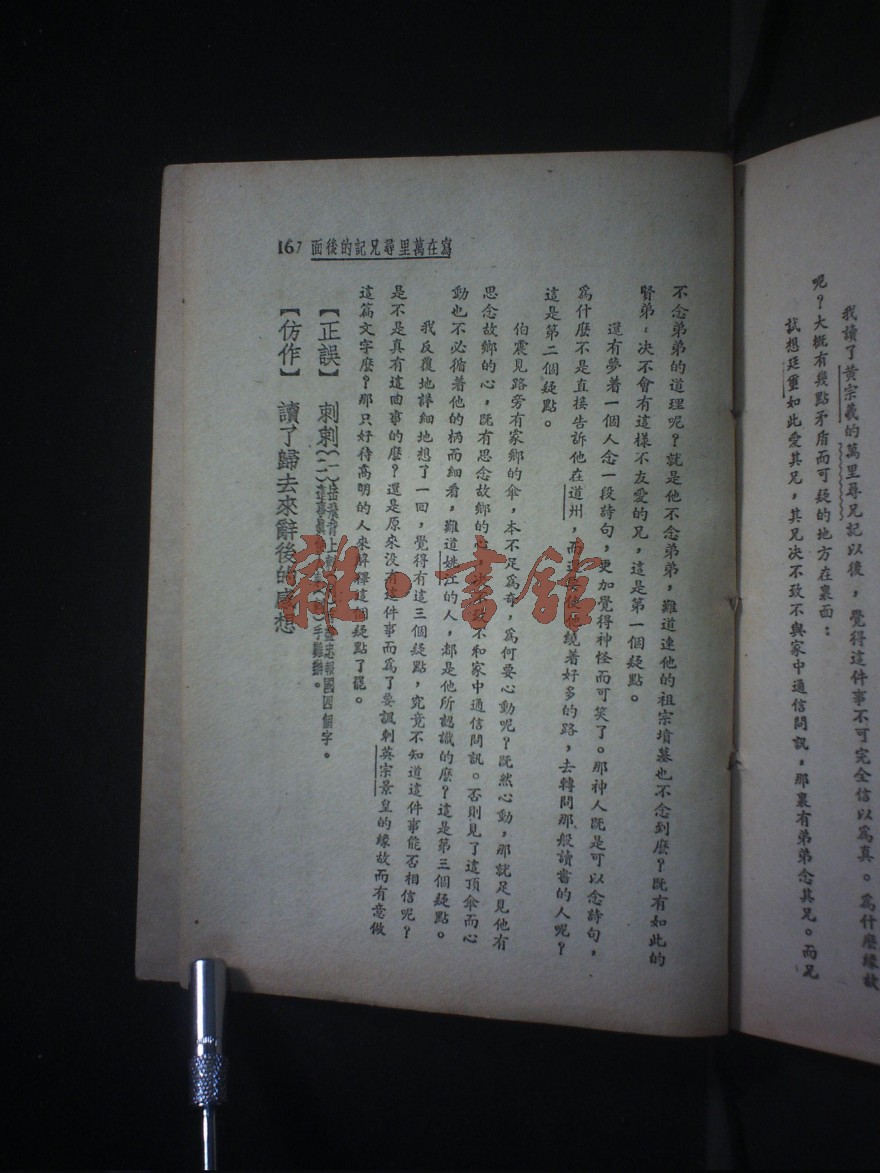 我讀了黃宗羲的萬里尋兄記以後，覺得這件事不可完全信以爲真。爲什麼緣故
呢？大概有幾點矛盾而可疑的地方在裏面：
試想廷璽如此愛其兄，其兄决不致不與家中通信問訊，那裏有弟弟念其兄。而兄
167 面後的記兄尋里萬在寫
不念弟弟的道理呢？就是他不念弟弟，難道連他的祖宗墳墓也不念到麼？旣有如此的
賢弟，决不會有這樣不友愛的兄，這是第一個疑點。
還有夢着一個人念一段詩句，更加覺得神怪而可笑了。那神人旣是可以念詩句，
爲什麼不是直接告訴他在道州，而繞着好多的路，去轉問那般讀書的人呢？
這是第二個疑點。
伯震見路旁有家鄉的傘，本不足爲奇，爲何要心動呢？旣然心動，那就足見他有
思念故鄉的心，旣有思念故鄉的心，决不致不和家中通信問訊。否則見了這頂傘而心
動也不必循着他的柄而細看，難道姚江的人，都是他所認識的麼？這是第三個疑點。
我反覆地詳細地想了一回，覺得有這三個疑點，究竟不知道這件事能否相信呢？
是不是真有這曲事的麼？還是原來没有這件事而爲了要諷刺英宗景皇的緣故而有意做
這篇文字麼？那只好待高明的人來解釋這個疑點了罷。
【正誤】 刺剌(一)岳飛背上忠報國四個字。(二)這事手難辦。
【仿作】 讀了歸去來辭後的感想
雜·書館